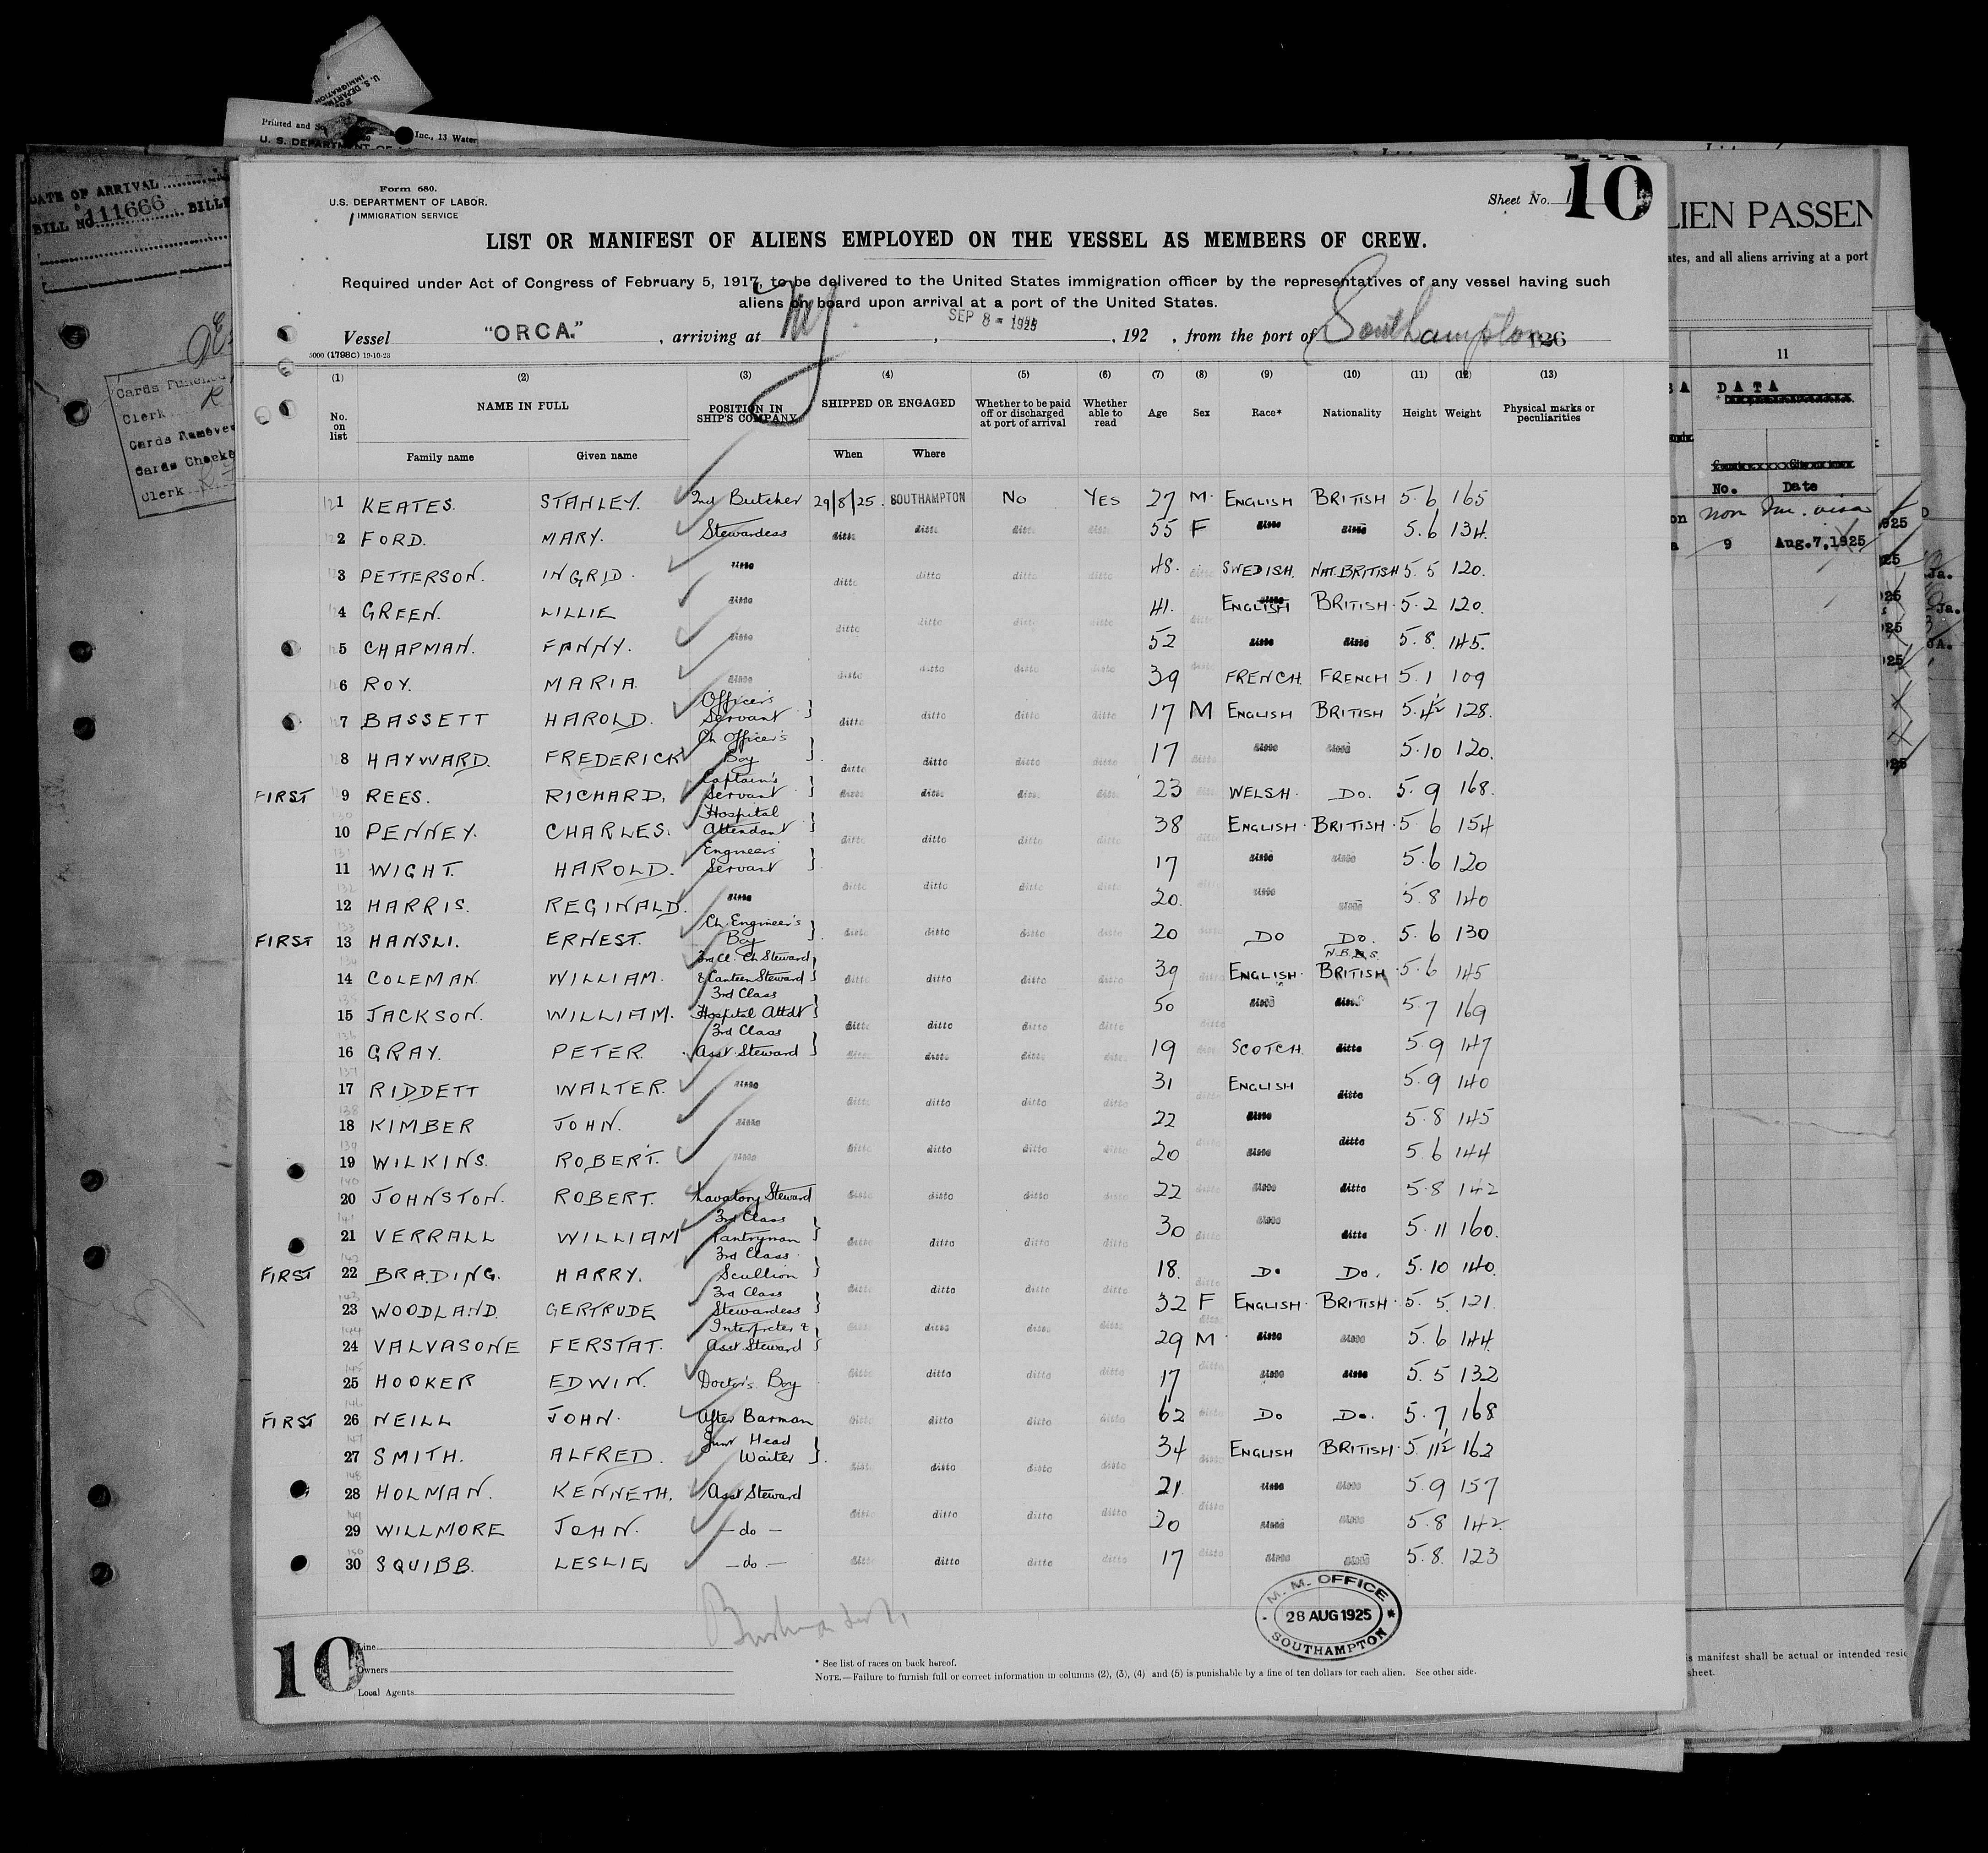 U. S. DEPARTMENT
IMMIGRATION
Printed and So Inc., 13 Water
U. S. DEPARTMENT OF
DATE OF ARRIVAL
BILL NO. 111666 BILL
Cards Punched
Clerk R
Cards Removed
Cards Checked
Clerk
Form 680.
U.S. DEPARTMENT OF LABOR.
IMMIGRATION SERVICE
Sheet No. 1
10
LIST OR MANIFEST OF ALIENS EMPLOYED ON THE VESSEL AS MEMBERS OF CREW.
Required under Act of Congress of February 5, 1917, to be delivered to the United States immigration officer by the representatives of any vessel having such
aliens on board upon arrival at a port of the United States.
Vessel "ORCA." , arriving at NY , SEP 8 - 1925 , 192 , from the port of Southampton 126
5000 (1798C) 19-10-23
(1) (2) (3) (4) (5) (6) (7) (8) (9) (10) (11) (12) (13)
No. on list NAME IN FULL POSITION IN SHIP'S COMPANY SHIPPED OR ENGAGED Whether to be paid off or discharged at port of arrival Whether able to read Age Sex Race* Nationality Height Weight Physical marks or peculiarities
Family name Given name When Where
1 KEATES. STANLEY. 2nd Butcher 29/8/25. SOUTHAMPTON NO YES 27 M. ENGLISH BRITISH 5.6 165
2 FORD. MARY. Stewardess ditto ditto ditto ditto 55 F ditto ditto 5.6 134.
3 PETTERSON. INGRID. ditto ditto ditto ditto 48. ditto SWEDISH. NAT. BRITISH 5.5 120.
4 GREEN. LILLIE ditto ditto ditto ditto ditto 41. ditto ENGLISH BRITISH. 5.2 120.
5 CHAPMAN. FANNY. ditto 52 ditto ditto 5.8. 145.
6 ROY. MARIA. ditto ditto ditto ditto ditto 39 ditto FRENCH. FRENCH 5.1 109
7 BASSETT HAROLD. Officer's Servant } ditto ditto ditto ditto 17 M ENGLISH BRITISH 5.4½ 128.
8 HAYWARD. FREDERICK Ch Officer's Boy } ditto ditto ditto ditto 17 ditto ditto ditto 5.10 120.
FIRST 9 REES. RICHARD. Captain's Servant } ditto ditto ditto ditto 23 ditto WELSH. DO. 5.9 168.
130 10 PENNEY. CHARLES. Hospital Attendant } ditto ditto ditto ditto 38 ditto ENGLISH. BRITISH. 5.6 154
131 11 WIGHT. HAROLD. Engineers' Servant } 17 ditto ditto 5.6 120
132 12 HARRIS. REGINALD. ditto ditto ditto ditto ditto 20. ditto ditto ditto 5.8 140
FIRST 133 13 HANSLI. ERNEST. Ch. Engineer's Boy } ditto ditto ditto ditto 20 ditto DO DO. 5.6 130
134 14 COLEMAN. WILLIAM. 3rd Cl. Ch Steward & Canteen Steward } ditto ditto ditto ditto 39 ditto ENGLISH. BRITISH. 5.6 145
135 15 JACKSON. WILLIAM. 3rd Class Hospital Attdt } ditto ditto ditto ditto 50 ditto ditto ditto 5.7 169
136 16 GRAY. PETER. 3rd Class Asst Steward } ditto ditto ditto ditto 19 ditto SCOTCH. ditto 5.9 147
137 17 RIDDETT WALTER. ditto ditto ditto ditto ditto 31 ditto ENGLISH ditto 5.9 140
138 18 KIMBER JOHN. ditto 22 ditto ditto 5.8 145
139 19 WILKINS. ROBERT. ditto ditto ditto ditto ditto 20 ditto ditto 5.6 144
140 20 JOHNSTON. ROBERT. Lavatory Steward ditto ditto ditto ditto 22 ditto ditto ditto 5.8 142
141 21 VERRALL WILLIAM 3rd Class Pantryman } ditto ditto ditto ditto 30 ditto ditto ditto 5.11 160.
FIRST 142 22 BRADING. HARRY. 3rd Class Scullion } ditto ditto ditto ditto 18. ditto DO DO. 5.10 140.
143 23 WOODLAND. GERTRUDE 3rd Class Stewardess } 32 F ENGLISH. BRITISH. 5.5. 121.
144 24 VALVASONE FERSTAT. Interpreter & Asst Steward } ditto ditto ditto ditto 29 M. ditto ditto 5.6 144.
145 25 HOOKER EDWIN. Doctor's Boy ditto ditto ditto ditto 17 ditto ditto ditto 5.5 132
FIRST 146 26 NEILL JOHN. After Barman ditto ditto ditto ditto 62 ditto DO DO. 5.7 168
147 27 SMITH. ALFRED. Junr Head Waiter }. ditto ditto ditto ditto 34 ditto ENGLISH BRITISH. 5.11½ 162
148 28 HOLMAN. KENNETH. Asst Steward 21. ditto ditto 5.9 157
149 29 WILLMORE JOHN. - do - ditto ditto ditto ditto 20 ditto ditto ditto 5.8 142.
150 30 SQUIBB. LESLIE, - do - ditto ditto ditto ditto 17 ditto ditto ditto 5.8. 123
M. M. OFFICE
28 AUG 1925
SOUTHAMPTON
10
Line
Owners
Local Agents
* See list of races on back hereof.
NOTE.—Failure to furnish full or correct information in columns (2), (3), (4) and (5) is punishable by a fine of ten dollars for each alien. See other side.
LIEN PASSEN
ates, and all aliens arriving at a port
11
DATA
No. Date
non Im. visa
9 Aug. 7, 1925
is manifest shall be actual or intended resid
sheet.